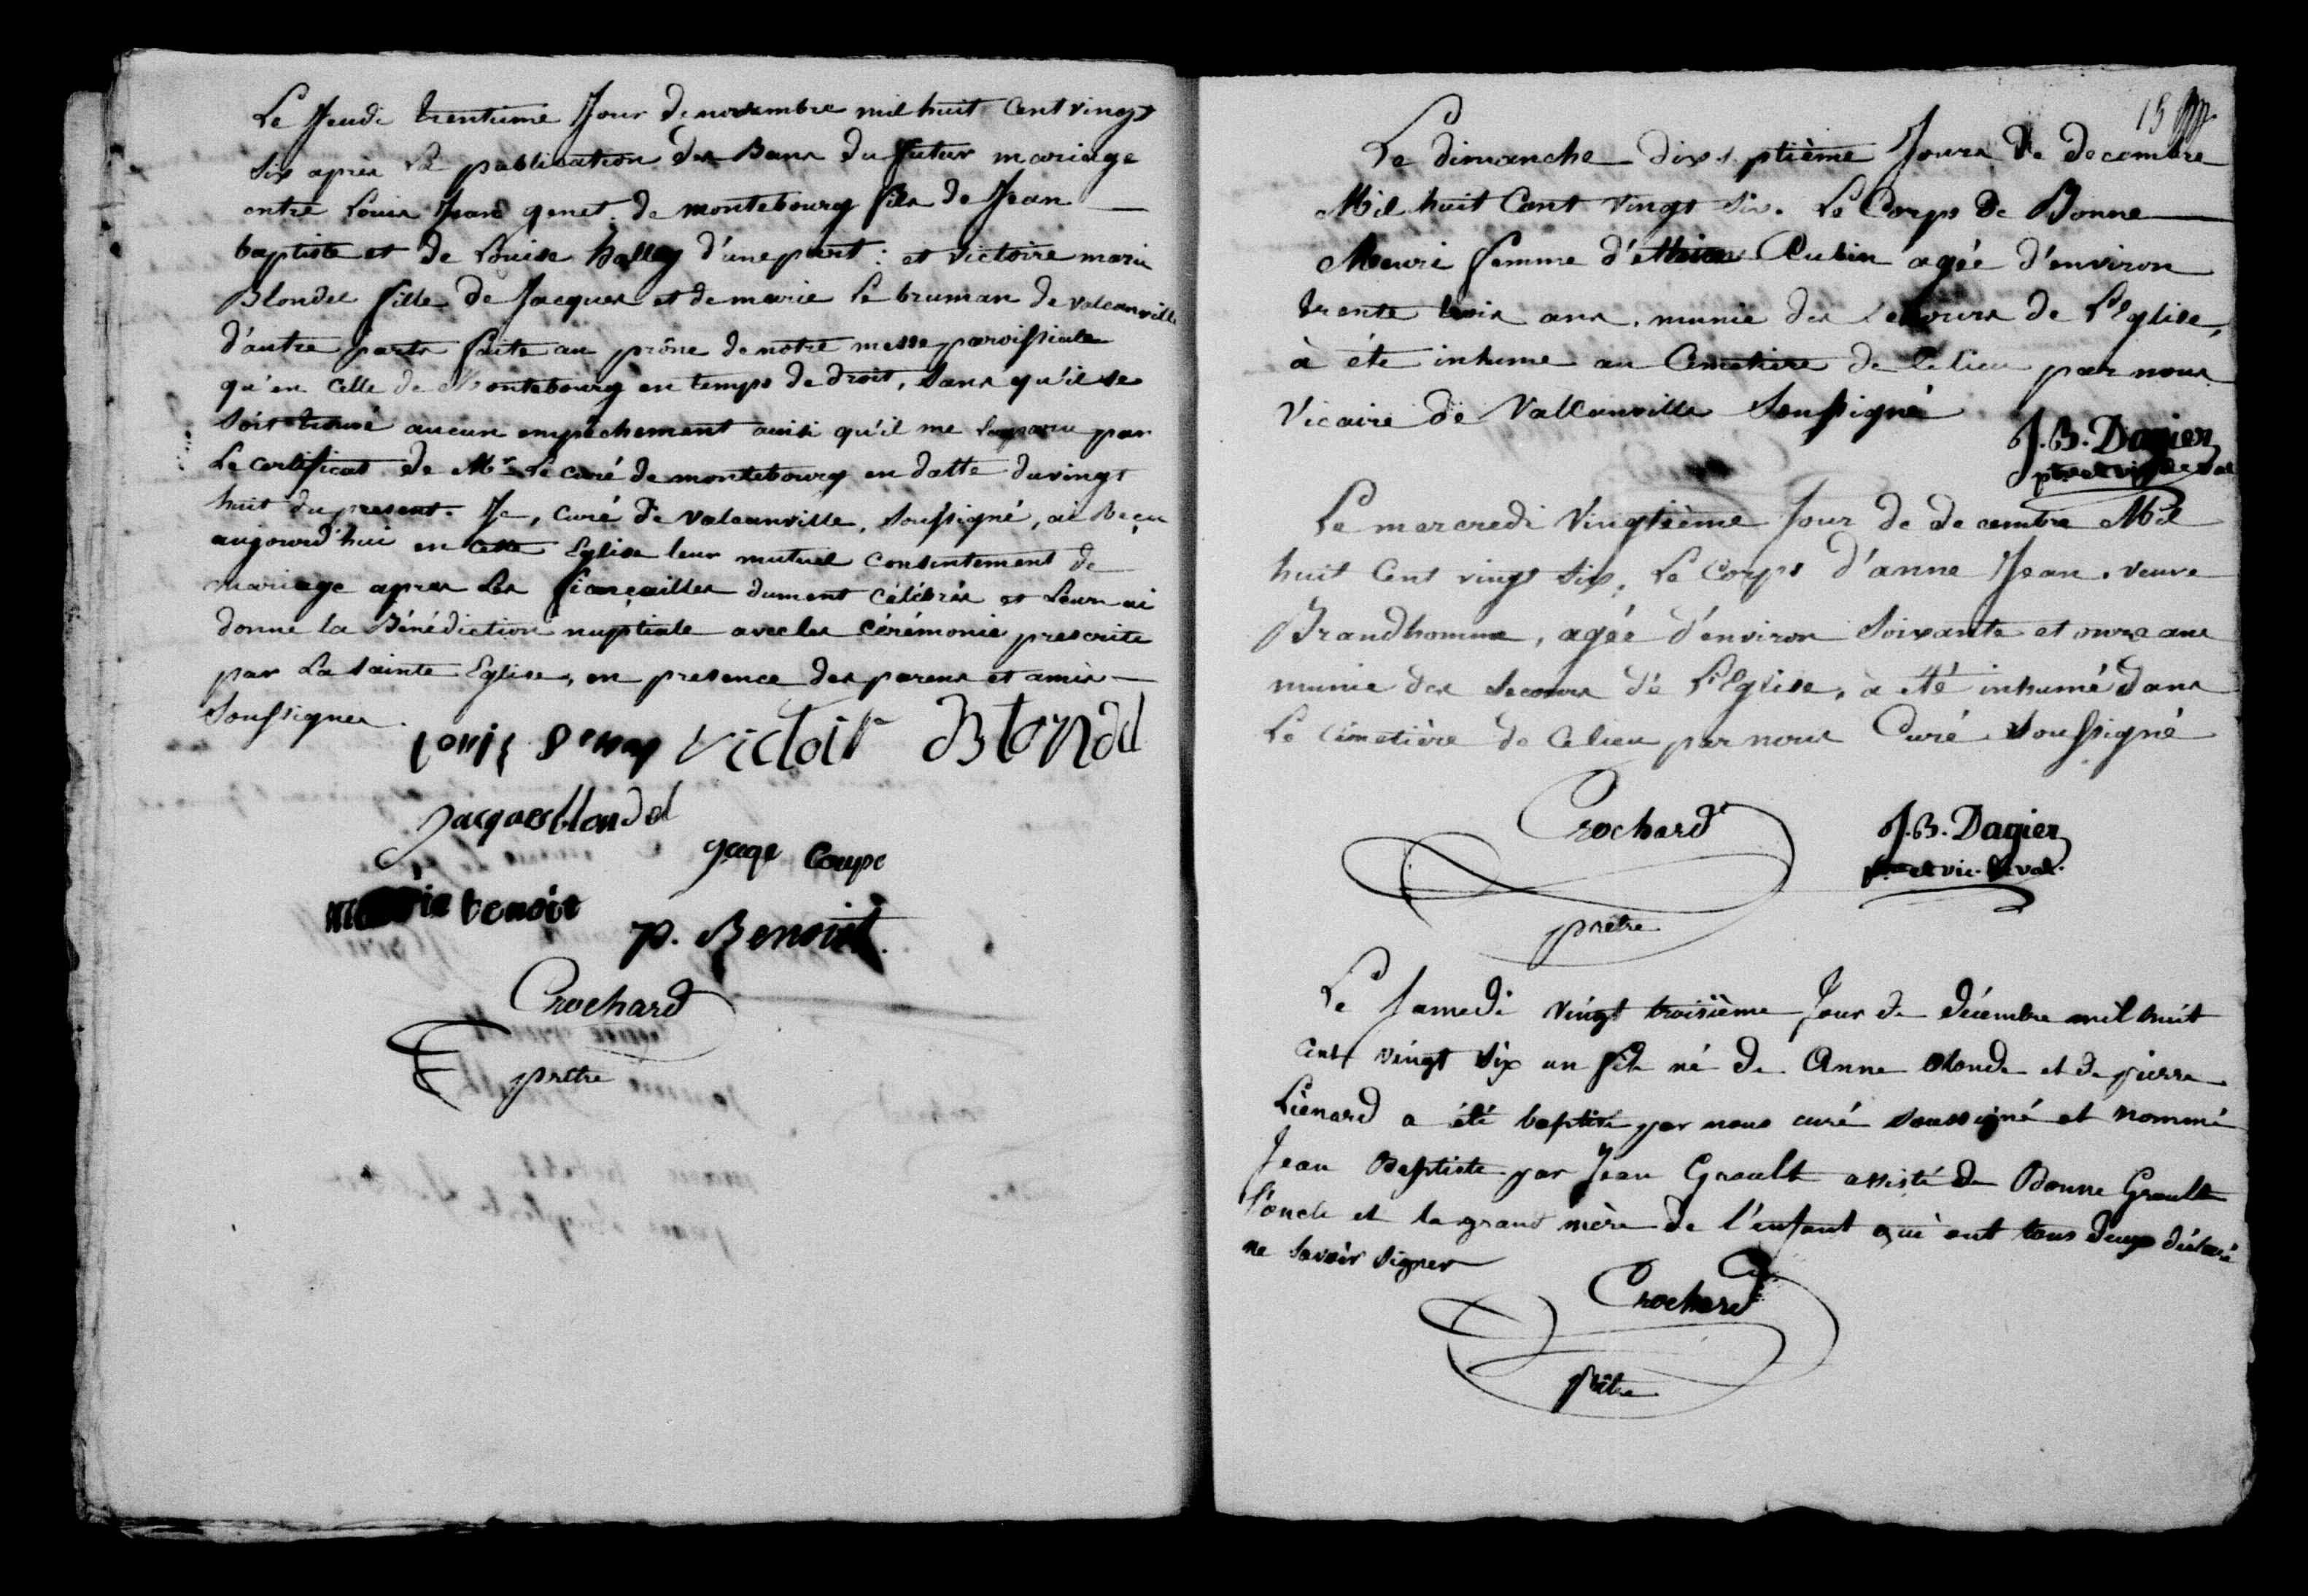 Le Jeudi trentieme Jour de novembre mil huit Cent vingt
six après la publication des Bans du futur mariage
entre Louis Jean genet de montebourg fils de Jean
baptiste et de Louise halley d'une part : et victoire marie
Blondel fille de Jacques et de marie Le bruman de valcanville
d'autre parts faite au prône de notre messe paroissiale
qu'en celle de Montebourg en temps de droit, sans qu'il se
soit trouvé aucun empêchement ainsi qu'il me par
Le certificat de Mr Le curé de montebourg en datte du vingt
huit du present. Je, curé de valcanville, soussigné, ai Reçu
aujourd'hui en cette Eglise leur mutuel consentement de
mariage apres les fiançailles dument célébrés et Leur ai
donné la Bénédiction nuptiale avec les cérémonie prescrite
par La sainte Eglise, en presence des parens et amis
soussignes.
Louis genet victoire Blondel
Jacques blondel
gage Coupé
benoist
p. Benoist
Crochard
prêtre
15
Le dimanche dix septième Jours de decembre
Mil huit Cent vingt six. Le Corps de Bonne
Meuri femme d'étienne Aubin agée d'environ
trente trois ans, munie des secours de L'Eglise,
à éte inhume au Cimetiere de ce lieu par nous
Vicaire de Valcanville Soussigné
J. B. Dagier
ptre et vic de val
Le mercredi Vingtième Jour de decembre Mil
huit Cent vingt six, Le Corps d'anne Jean, veuve
Brandhomme, agée d'environ soixante et onze ans
munie des secours dé L'Eglise, à été inhumé dans
Le cimetière de ce lieu par nous Curé soussigné
Crochard
prêtre
J. B. Dagier
ptre et vic. de val.
Le Samedi vingt troisième Jour de décembre mil huit
cent vingt six un fils né de Anne olonde et de pierre
Liénard a été baptisé par nous curé soussigné et nommé
Jean Baptiste par Jean Grault assisté de Bonne Grault
l'oncle et la grand mère de l'enfant qui ont tous deux déclaré
ne savoir signer
Crochard
prêtre